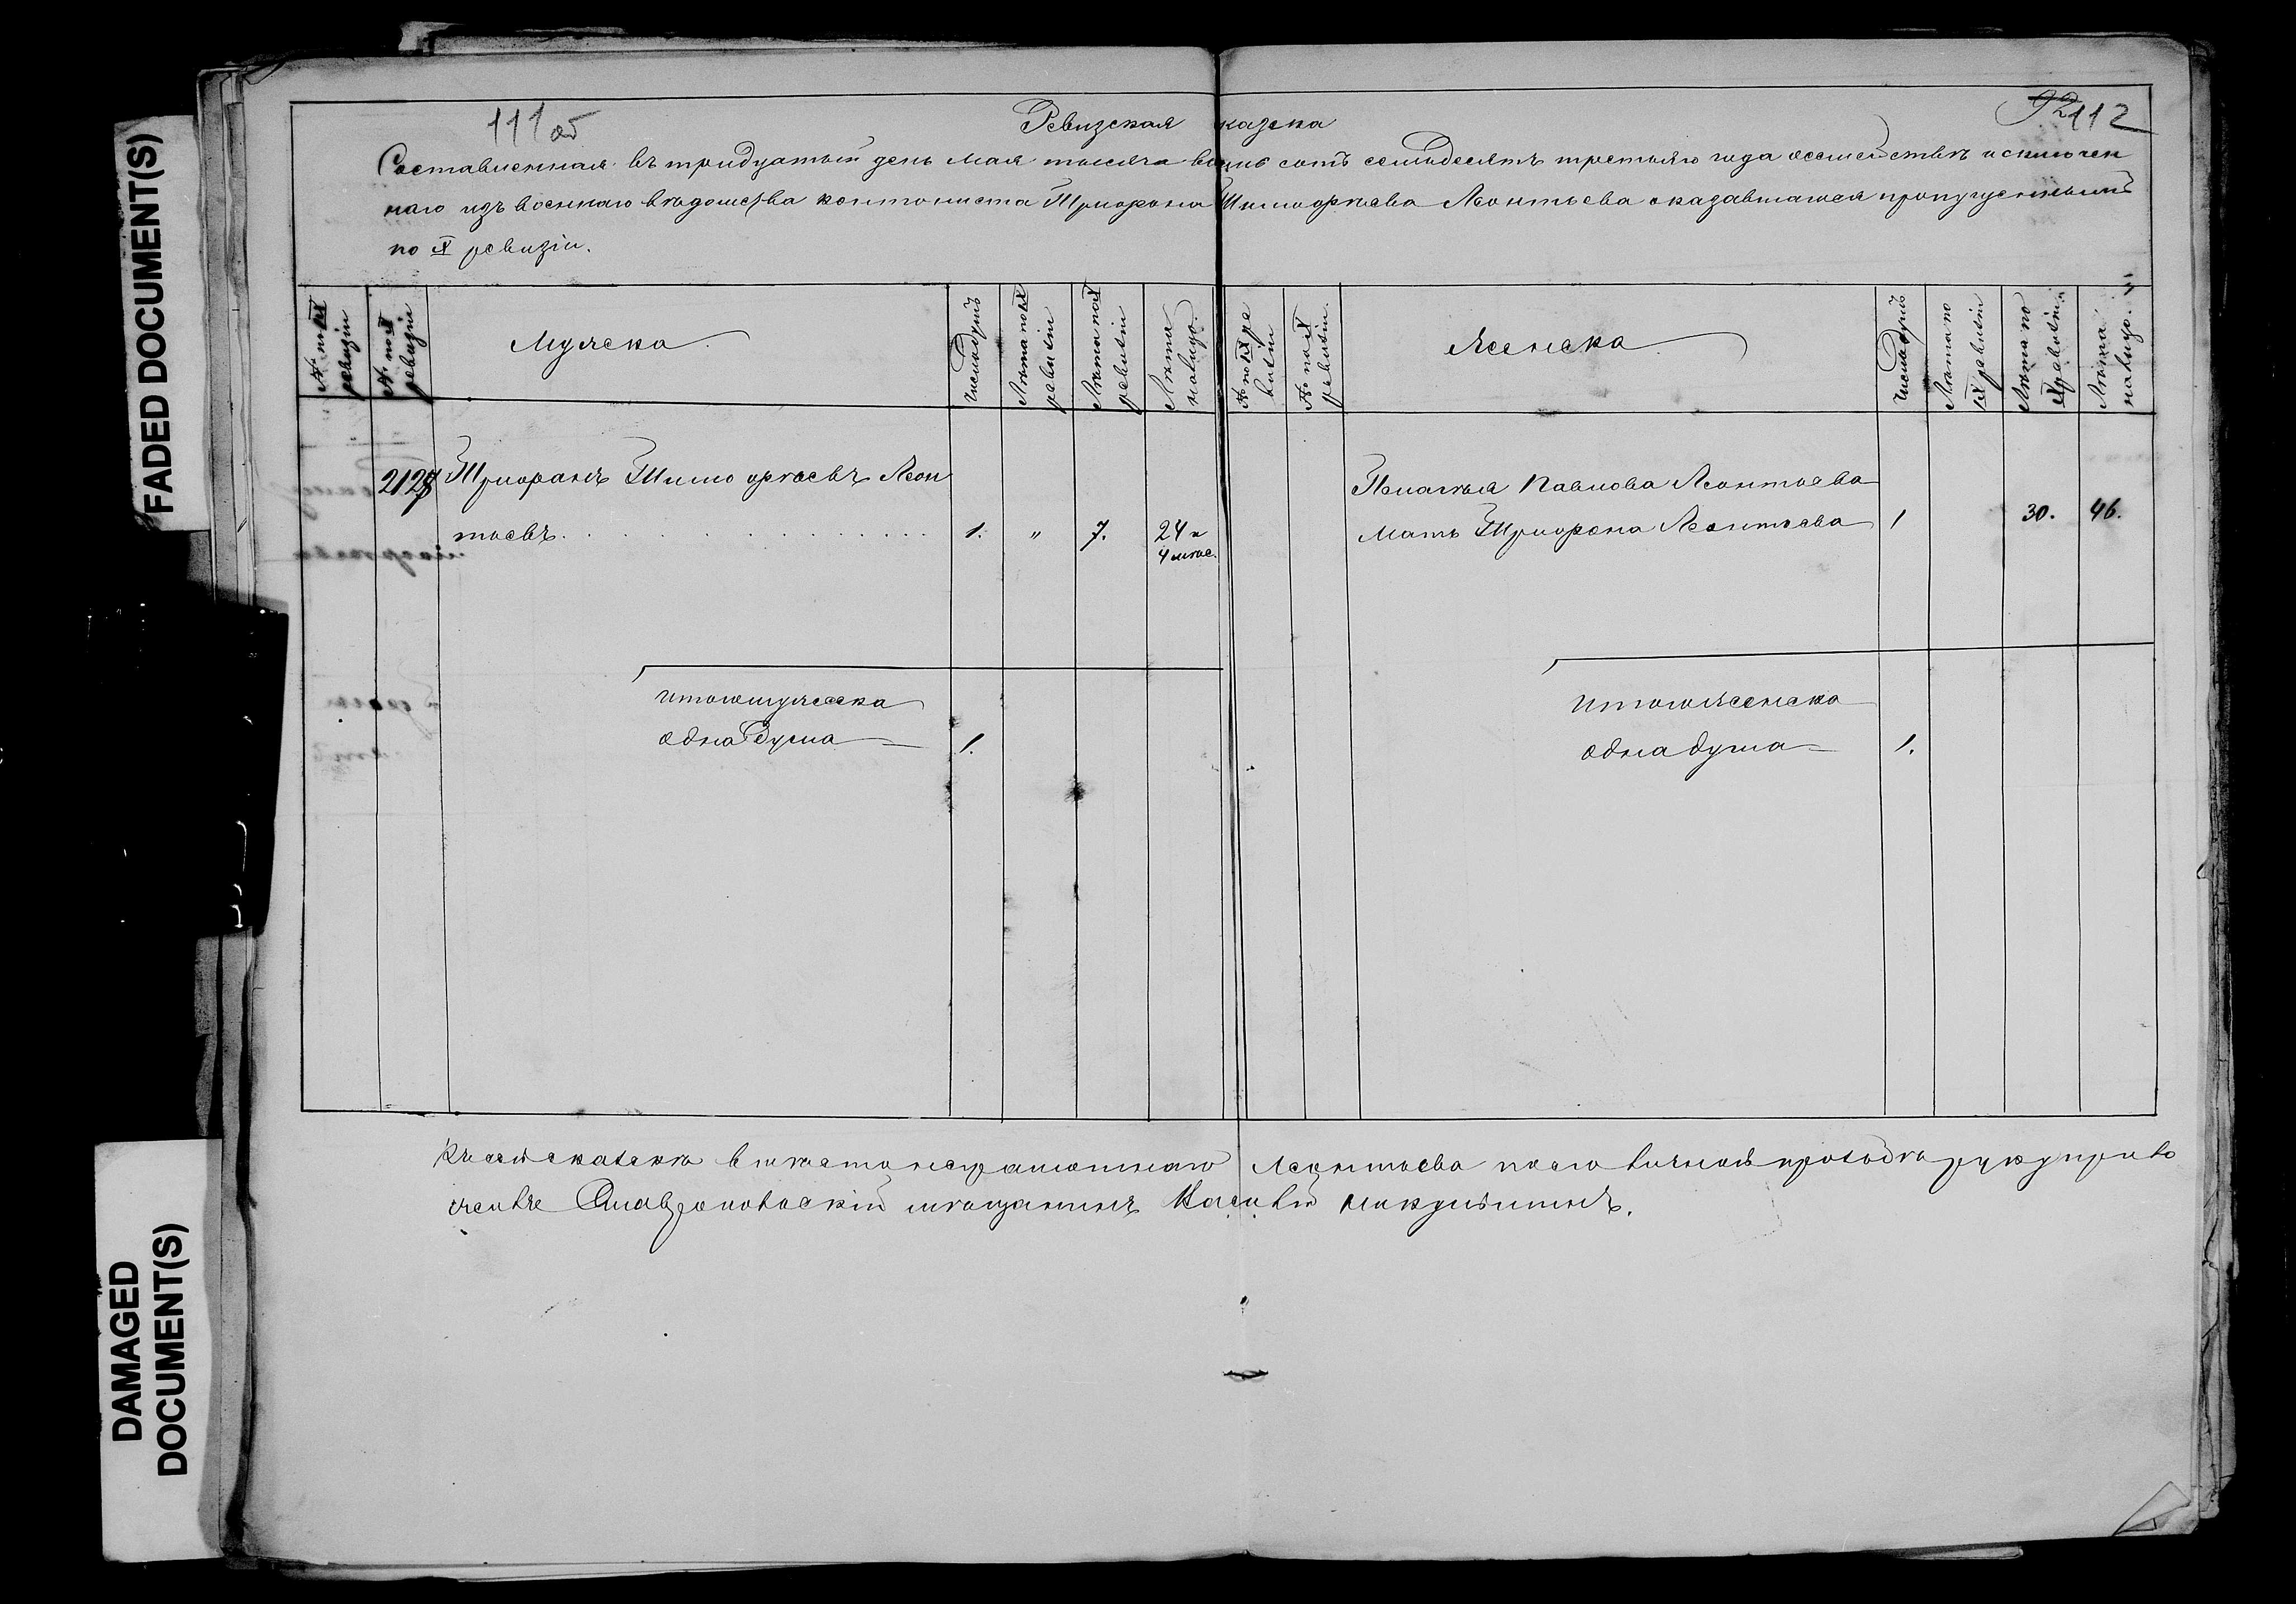 FADED DOCUMENT(S)
DAMAGED
DOCUMENT(S)
111 об
92 112
Ревизская сказка
Составленная въ тридцатый день мая тысяча восемь сотъ семьдесятъ третьяго года о семействѣ исключен
наго изъ военнаго вѣдомства кантониста Трифона Тимофѣева Леонтьева оказавшагося пропущеннымъ
по X ревизіи.
№ по IX ревизіи
№ по X ревизіи
Мужеска
Число душъ
Лѣта по IX ревизіи
Лѣта по X ревизіи
Лѣта на лицо.
№ по IX ревизіи
№ по X ревизіи.
Женска
Число душъ
Лѣта по IX ревизіи
Лѣта по X ревизіи.
Лѣта на лицо.
2127 Трифонъ Тимофѣевъ Леон
тьевъ. 1. " 7. 24 и
4 мѣс.
Павлова Леонтьева
Мать Трифона Леонтьева 1 30. 46.
Итого мужеска
одна душа 1.
Итого женска
одна душа 1.
Къ сей сказкѣ вмѣсто неграмотнаго Леонтьева по его личной прозьбѣ руку прило
жилъ Ставропольскій мѣщанинъ